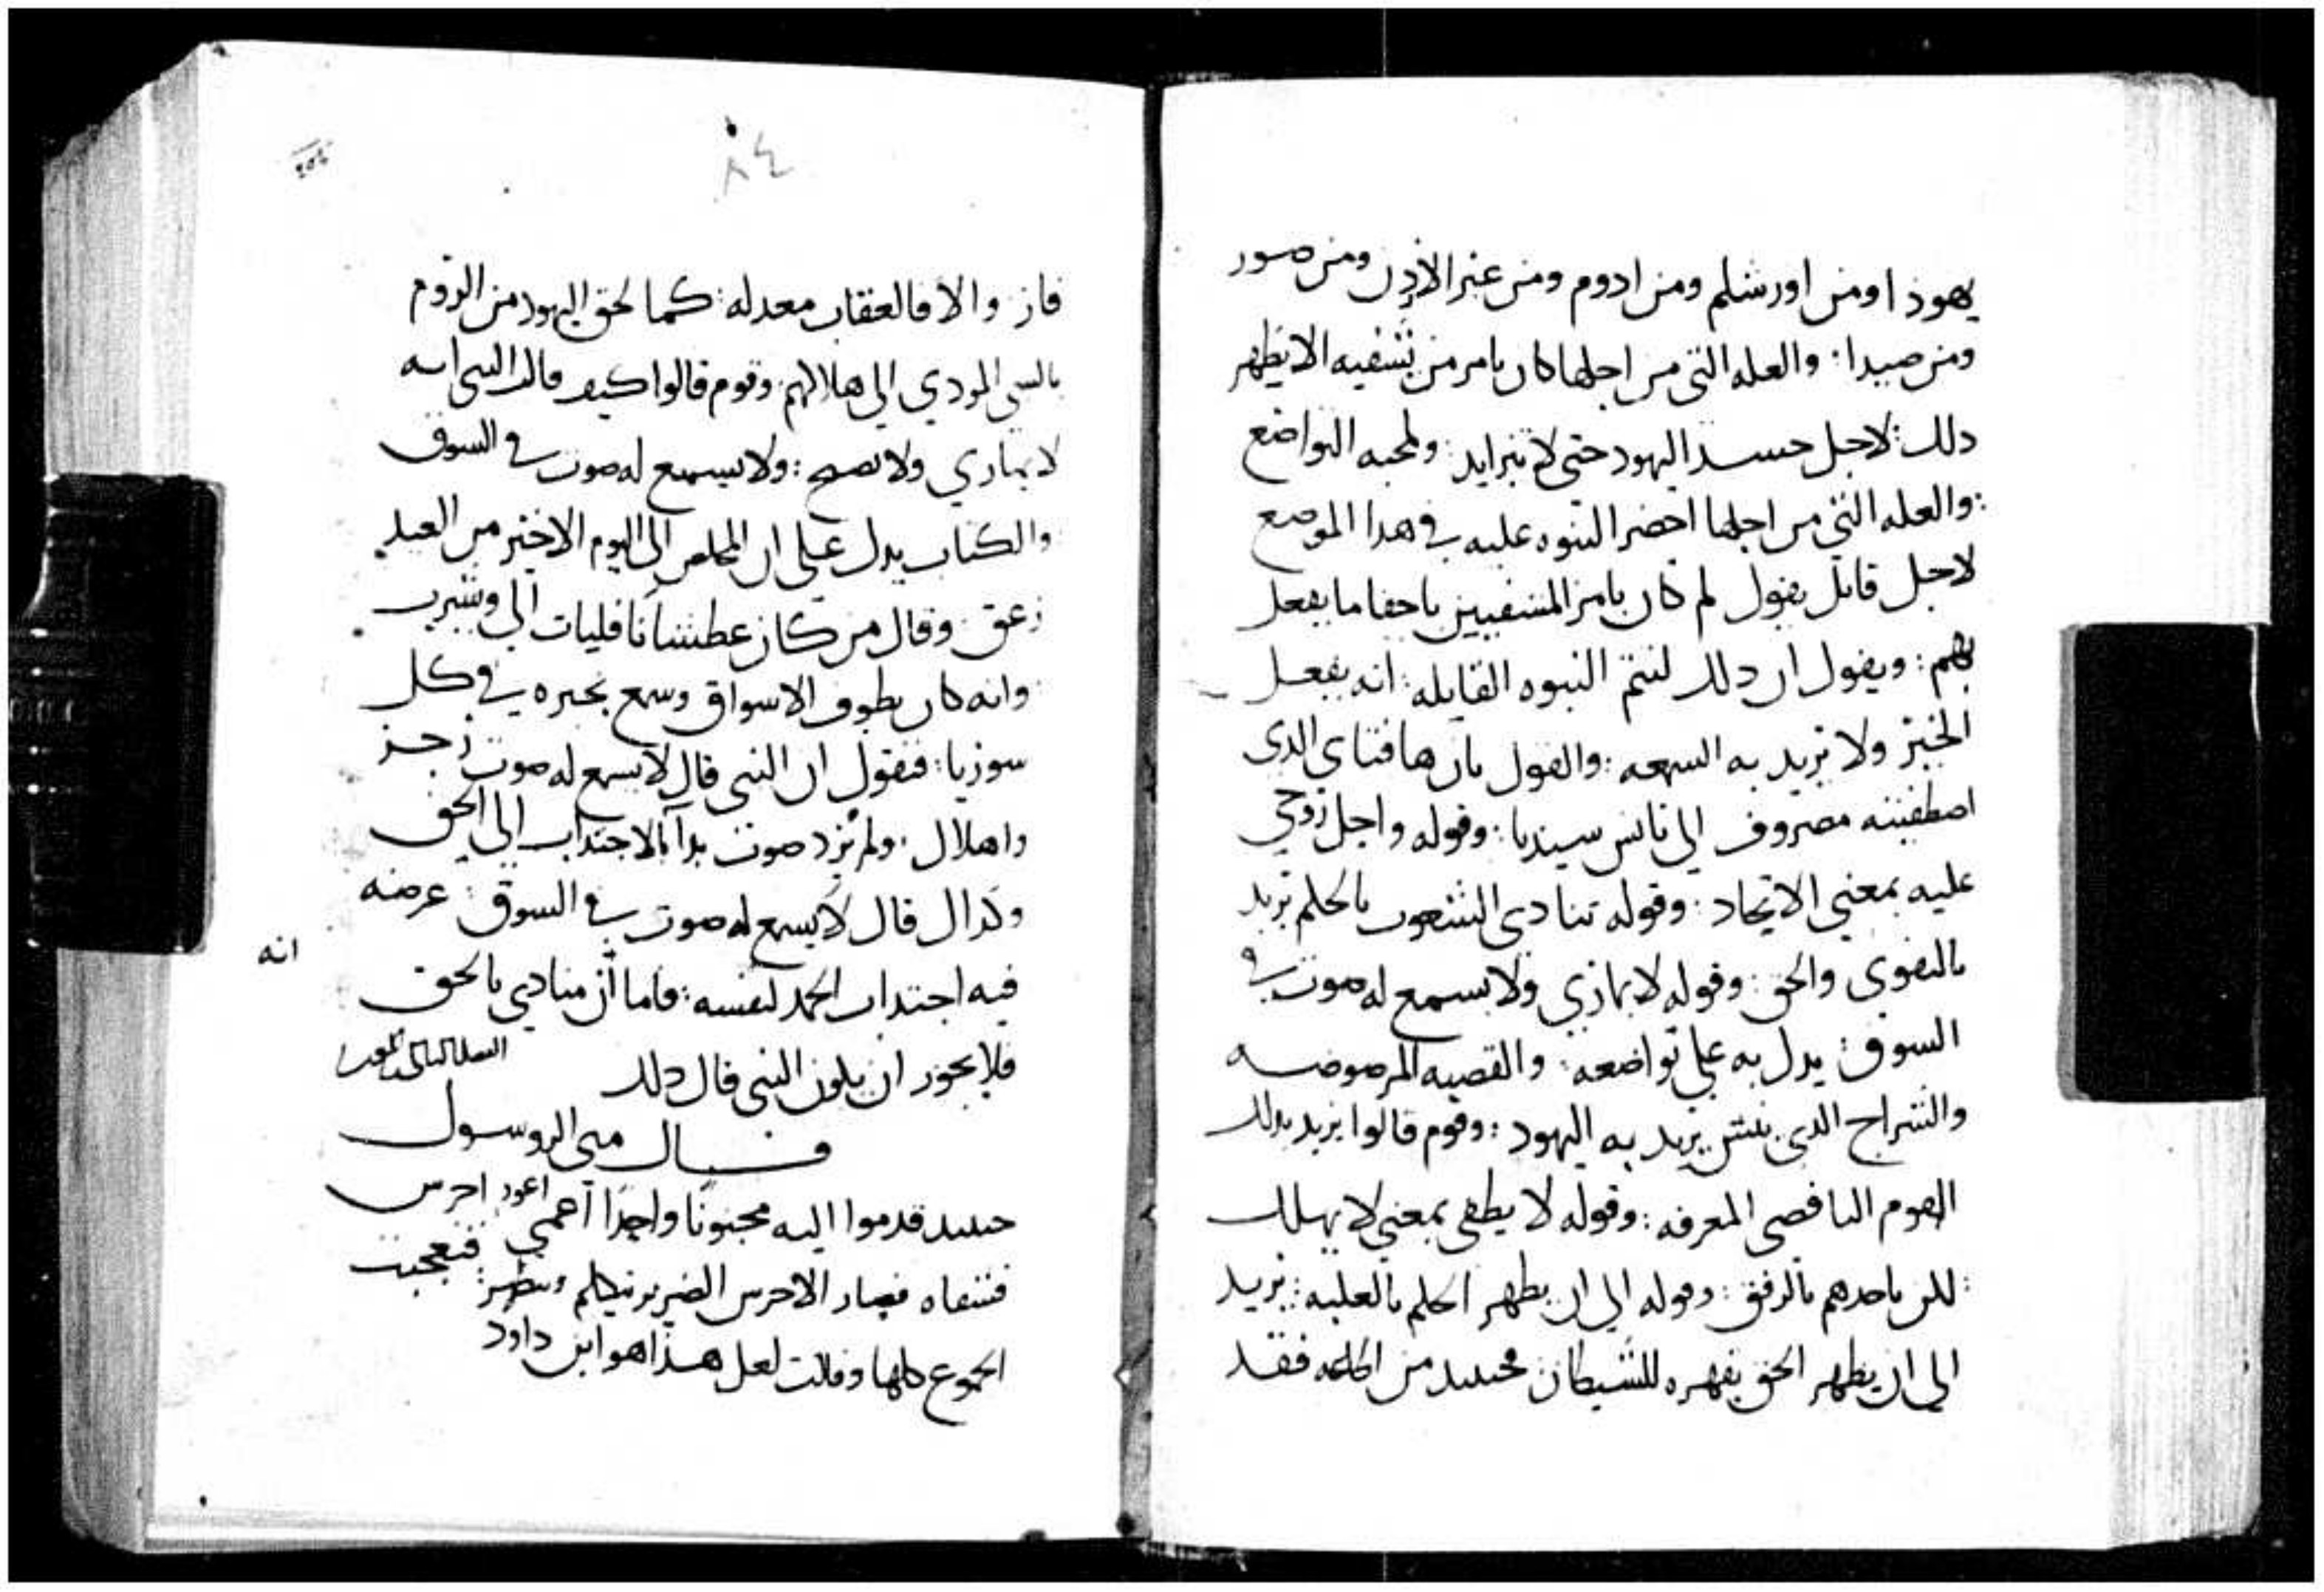 يهوذا ومن اورشلم ومن ادوم ومن عبر الاردن ومن صور
ومن صيدا : والعله التي من اجلها كان يامر من تشفيه الا يظهر
دلك : لاجل حسد اليهود حتى لا يتزايد : ولمحبه التواضع
: والعله التي من اجلها احضر النبوه عليه في هدا الموضع
لاجل قايل يقول لم كان يامر المشفيين باخفا ما يفعل
بهم : ويقول ان دلك لتتم النبوه القايله : انه يفعل
الخير ولا يريد به السمعه : والقول بان ها فتاي الدى
اصطفيته مصروف الى ناس سيدنا : وقوله واحل روحي
عليه بمعنى الاتحاد : وقوله تنادي الشعوب بالحكم يريد
بالتقوى والحق : وقوله لا يماري ولا يسمع له صوت في
السوق : يدل به على تواضعه : والقصبه المرضوضه
والسراج الدى ينش يريد به اليهود : وقوم قالوا يريد بدلك
القوم الناقصى المعرفه : وقوله لا يطفى بمعنى لا يهلك
: لكن ياخدهم بالرفق : وقوله الى ان يظهر الحكم بالغلبه : يريد
الى ان يظهر الحق بقهره للشيطان فحينيد من اطاعه فقد
٨٤
فاز والا فالعقاب معد له : كما لحق اليهود من الروم
بالسبي المودي الى هلاكهم : وقوم قالوا كيف قال النبى انه
لا يماري ولا يصيح : ولا يسمع له صوت في السوق
والكتاب يدل على ان المخلص فى اليوم الاخير من العيد
زعق : وقال من كان عطشانا فليات الى وشرب
وانه كان يطوف الاسواق وسمع بخبره في كل
سوريا : فنقول ان النبى قال لا يسمع له صوت زجر
واهلال : ولم يرد صوت ندا بالاجتداب الى الحق
وكدا قال لا يسمع له صوت في السوق : غرضه
انه
فيه اجتداب الحمد لنفسه : فاما ان منادي بالحق
فلا يجوز ان يكون النبى قال دلك
قــال متى الرسول
حينيد قدموا اليه مجنونا واحدا اعمى اعور اخرس
فشفاه فصار الاخرس الضرير يتكلم وينظر : فتعجبت
الجموع كلها وقالت لعل هذا هو ابن داود